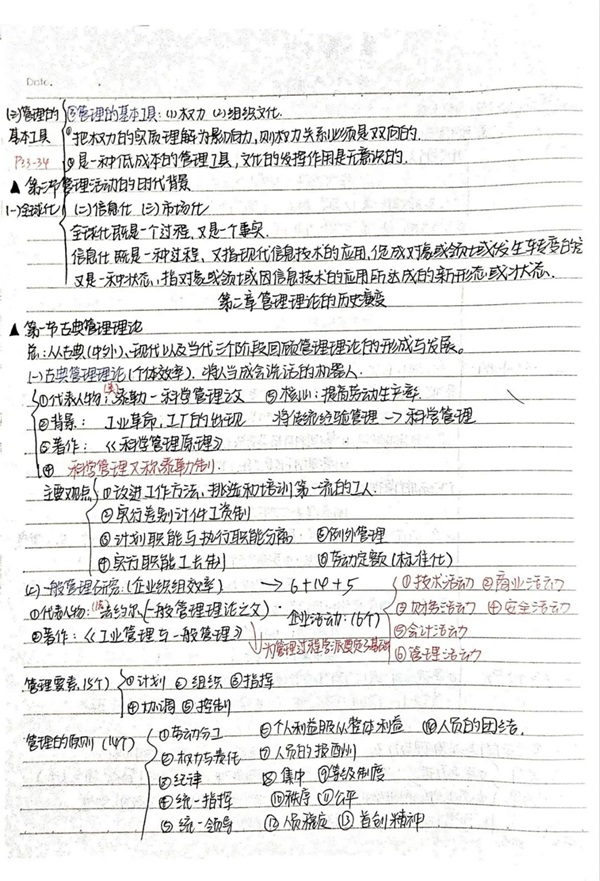 Date.
(三)管理的基本工具 P33-34
③管理的基本工具:(1)权力 (2)组织文化.
①把权力的实质理解为影响力,则权力关系必须是双向的.
②是一种低成本的管理工具,文化的发挥作用是无意识的.
▲ 第三节管理活动的时代背景
(一)全球化 (二)信息化 (三)市场化
全球化既是一个过程,又是一个事实.
信息化既是一种过程,又指现代信息技术的应用,促成对象或领域或发生转变的
又是一种状态,指对象或领域因信息技术的应用所达成的新形态或状态.
第二章管理理论的历史演变
▲ 第一节古典管理理论
总:从古典(中外)、现代以及当代三个阶段回顾管理理论的形成与发展。
(一)古典管理理论(个体效率).将人当成会说话的机器人.
①代表人物:(美)泰勒—科学管理之父 ②核心:提高劳动生产率.
③背景: 工业革命,工厂的出现 将传统经验管理→科学管理
⑤著作: 《科学管理原理》
④ 科学管理又称泰勒制.
主要观点 ①改进工作方法,挑选和培训第一流的工人.
②实行差别计件工资制
③计划职能与执行职能分离 ⑤例外管理
④实行职能工长制 ⑥劳动定额(标准化)
(二)一般管理研究:(企业组织效率) → 6+14+5
①代表人物:(法)法约尔(一般管理理论之父).
②著作:《工业管理与一般管理》
为管理过程学派奠定了基础
企业活动:(6个) ①技术活动 ②商业活动
③财务活动 ④安全活动
⑤会计活动
⑥管理活动
管理要素.(5个) ①计划 ②组织 ③指挥
④协调 ⑤控制
管理的原则(14个) ①劳动分工 ⑥个人利益服从整体利益 ⑭人员的团结.
②权力与责任 ⑦人员的报酬
③纪律 ⑧集中 ⑨等级制度
④统一指挥 ⑩秩序 ⑪公平
⑤统一领导 ⑫人员稳定 ⑬首创精神